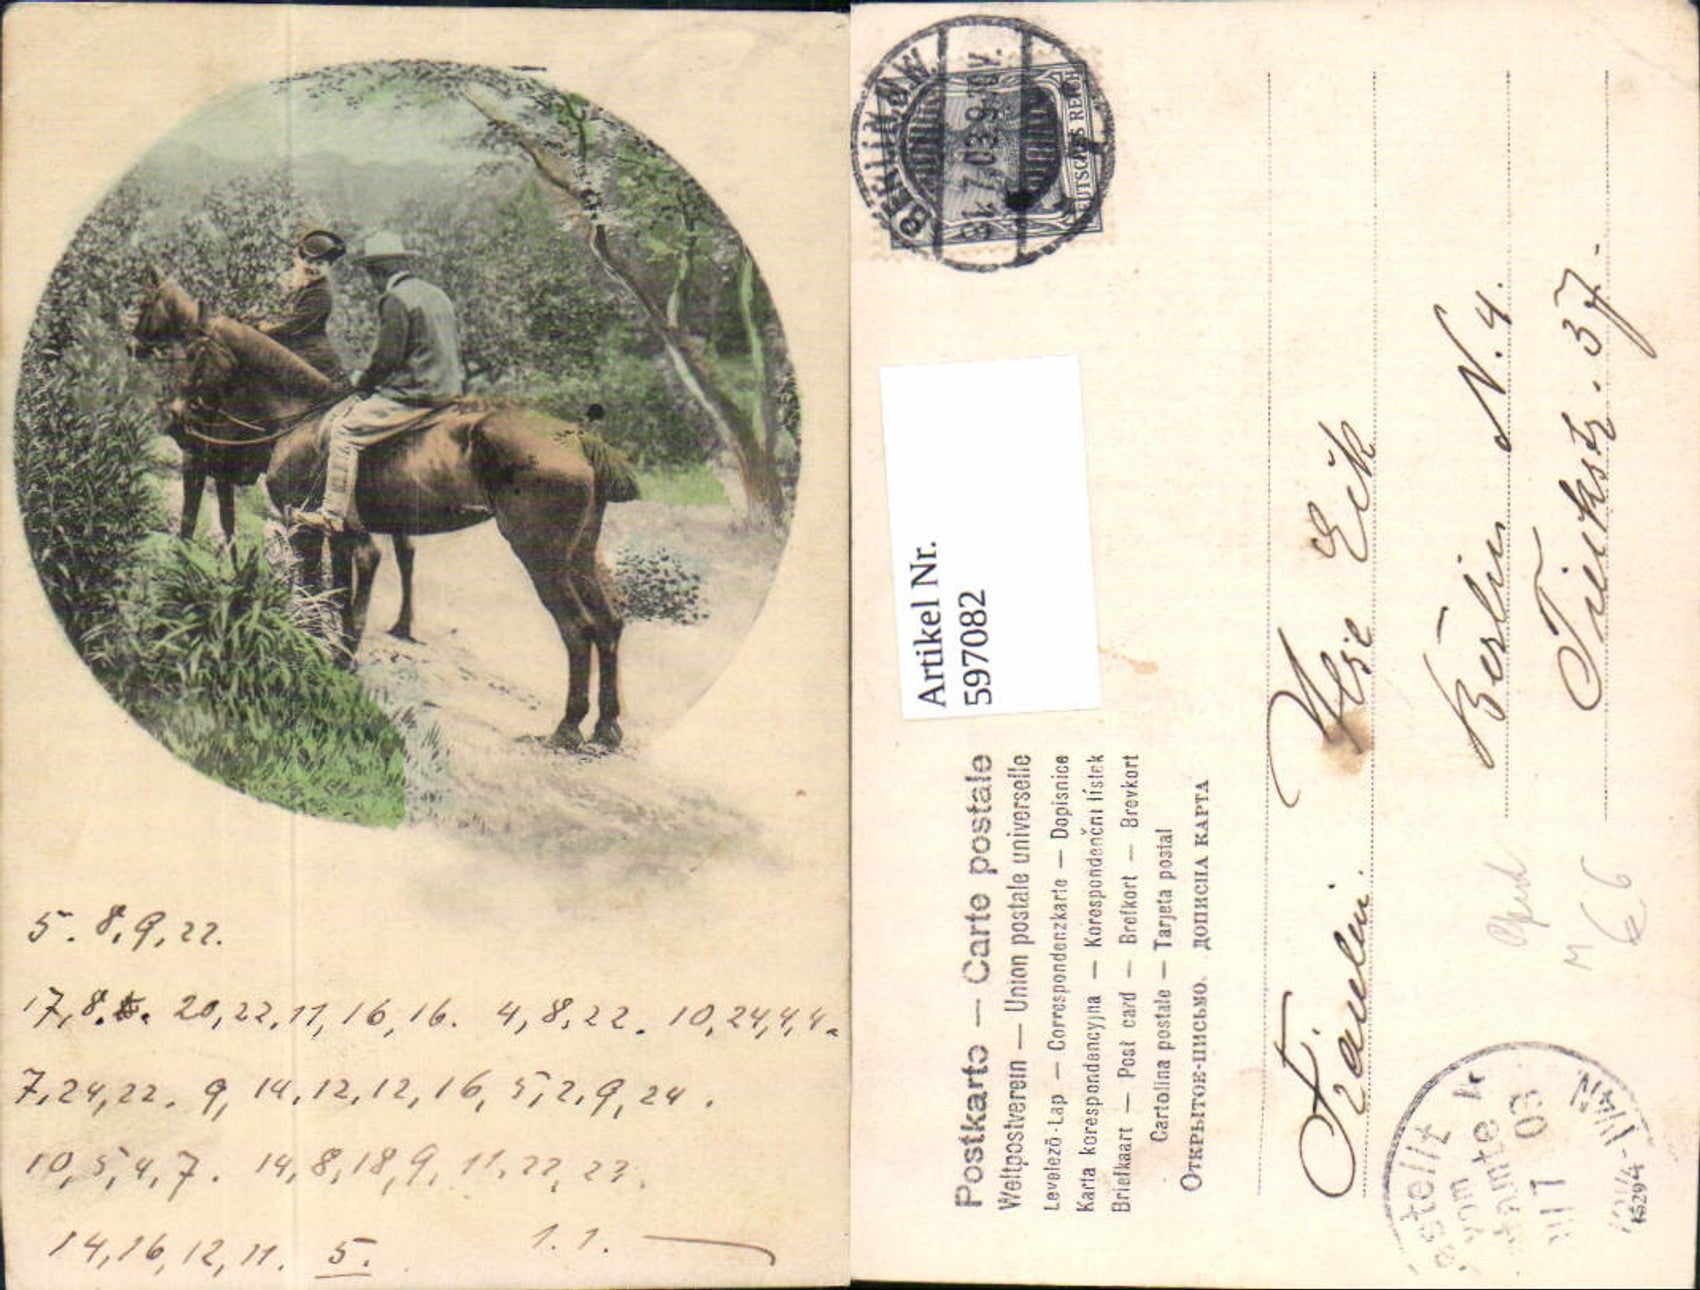 5. 8, 9, 22.
17, 8. 20, 22, 11, 16, 16. 4, 8, 22. 10, 24, 4, 4.
7, 24, 22. 9, 14, 12, 12, 16, 5, 2, 9, 24.
10, 5, 4, 7. 14, 8, 18, 9, 11, 22, 23.
14, 16, 12, 11. 5. 1. 1.
BERLIN
DEUTSCHES REICH
Artikel Nr.
597082
Postkarte — Carte postale
Weltpostverein — Union postale universelle
Levelező-Lap — Correspondenzkarte — Dopisnice
Karta korespondencyjna — Korespondenční lístek
Briefkaart — Post card — Brefkort — Brevkort
Cartolina postale — Tarjeta postal
ОТКРЫТОЕ-ПИСЬМО. ДОПИСНА КАРТА
Fräulein
Ilse Eick
Berlin N. 4.
Tieckstr. 37.
M 66
Bestellt
vom
Postamte